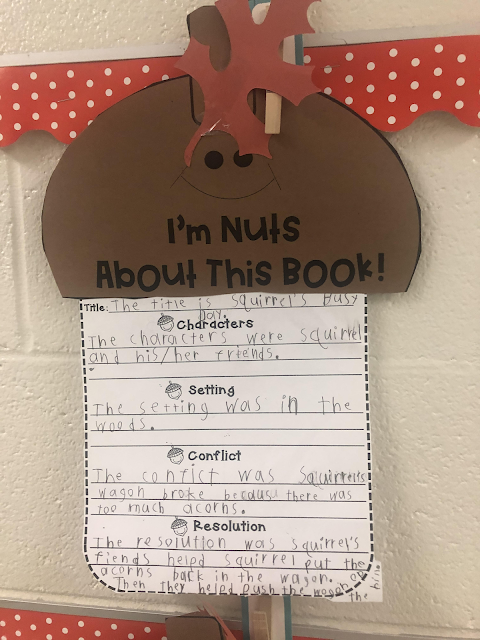 I'm Nuts
About This Book!
Title: The title is Squirrel's Busy
Day.
Characters
The characters were squirrel
and his/her friends.
Setting
The setting was in the
woods.
Conflict
The confict was Squirrels
wagon broke because there was
too much acorns.
Resolution
The resolution was squirrel's
fiends helpd squirrel put the
acorns back in the wagon.
Then they helped push the wagon up
the hill.